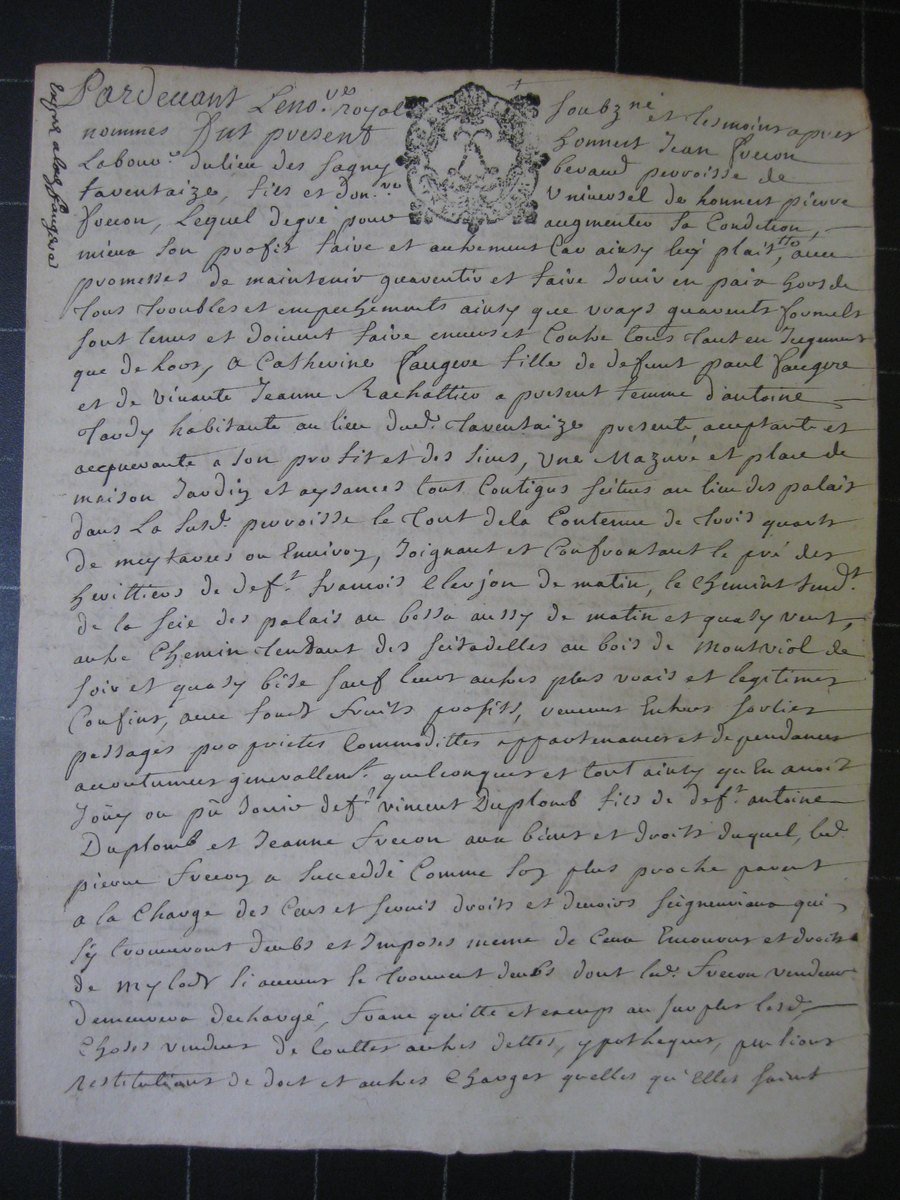 Pardevant Leno.re royal soubzné et les moins apres
nommes Dut present honnest Jean Frecon
Labour.r du lieu des Sagny beraud perroisse de
Taventaize, fils et don.re universel de honnest pierre
Frecon, Lequel de gré pour augmenter sa Condition,
mieux son profit faire et autrement Car ainsy luy plait, avec
promesses de maintenir guarentir et faire Jouir en paix hors de
tous troubles et empechements ainsy que vrays guarents formels
sont tenus et doivent faire envers et Contre tous tant en Jugement
que de hors, a Catherine faugere fille de defunt paul faugere
et de vivante Jeanne Rachattier a present femme d'antoine
tardy habitante au lieu dud. taventaize presente acceptante et
acquerante a son profit et des siens, une Mazure et place de
maison Jardin et aysances tout Contigus scitues au lieu des palais
dans La susd. perroisse le tout dela Contenue de trois quarts
de meytarees ou Environ, Joignant et Confrontant le pré des
herittiers de def.t francois Clerjon de matin, le Chemint tend.t
de la scie des palais au bessa aussy de matin et quasy vent,
autre Chemin tendant des scitadelles au bois de Montviol de
soir et quasy bise sauf leurs autres plus vrais et legitimes
Confins, avec fonds fruits profits, venues Entrees sorties
passages proprietes Commodittes appartenances et dependances
accoutumees generallem.t quelconques et tout ainsy qu'En avoit
Joüy ou pû Jouir def.t vincent Duplomb fils de def.t antoine
Duplomb et Jeanne Frecon aux biens et droits duquel, led.
pierre Frecon a succeddé Comme son plus proche parent
a la Charge des Cens et servis droits et devoirs seigneuriaux qui
s'y trouveront deubs et Imposes meme de Ceux Encourus et droits
de mylods si aucuns se trouvent deubs dont led. Frecon vendeur
demeurera dechargé, franc quitte et exempt au surplus lesd.
Choses vendues de touttes autres dettes, ypotheques, pentions
restitutions de doct et autres Charges quelles qu'elles soint